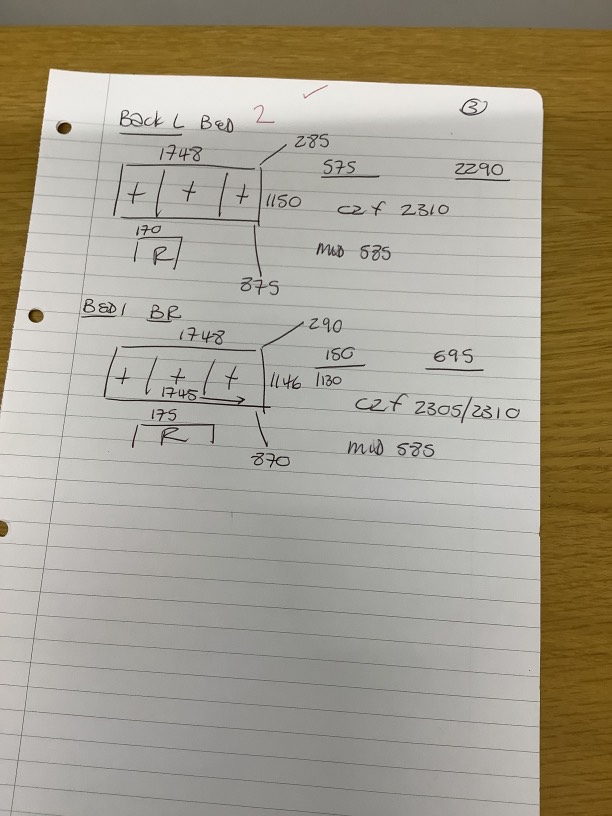 ③
Back L Bed 2 ✓
285
1748
575
2290
1150
c2f 2310
170
R
mwd 585
875
Bed 1 BR
290
1748
150
695
1146
1130
1745
c2f 2305/2310
175
R
mwd 585
870